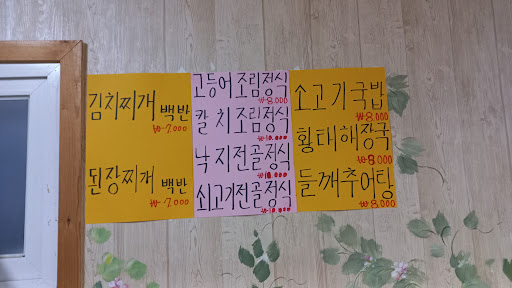 김치찌개 백반
₩ 7.000
된장찌개 백반
₩ 7.000
고등어조림정식
₩ 8.000
칼치조림정식
₩ 10.000
낙지전골정식
₩ 10.000
쇠고기전골정식
₩ 10.000
소고기국밥
₩ 8.000
황태해장국
₩ 8.000
들깨추어탕
₩ 8.000